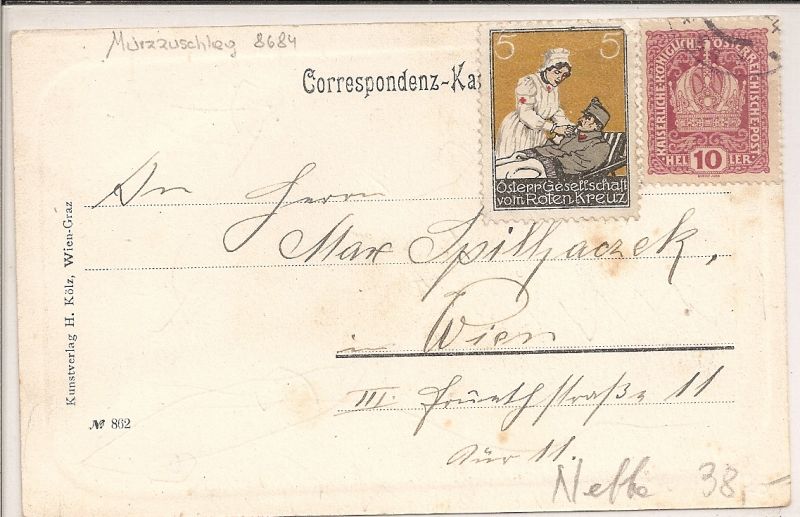 Mürzzuschlag 8684
Correspondenz-Ka
5 5
Österr. Gesellschaft
vom Roten Kreuz
KAISERLICHE KÖNIGLICHE ÖSTERREICHISCHE POST
HEL 10 LER
An Herrn
Max Spilhaczek,
in Wien
III. straße 11
Tür 11.
38,-
Kunstverlag H. Kölz, Wien-Graz
№ 862